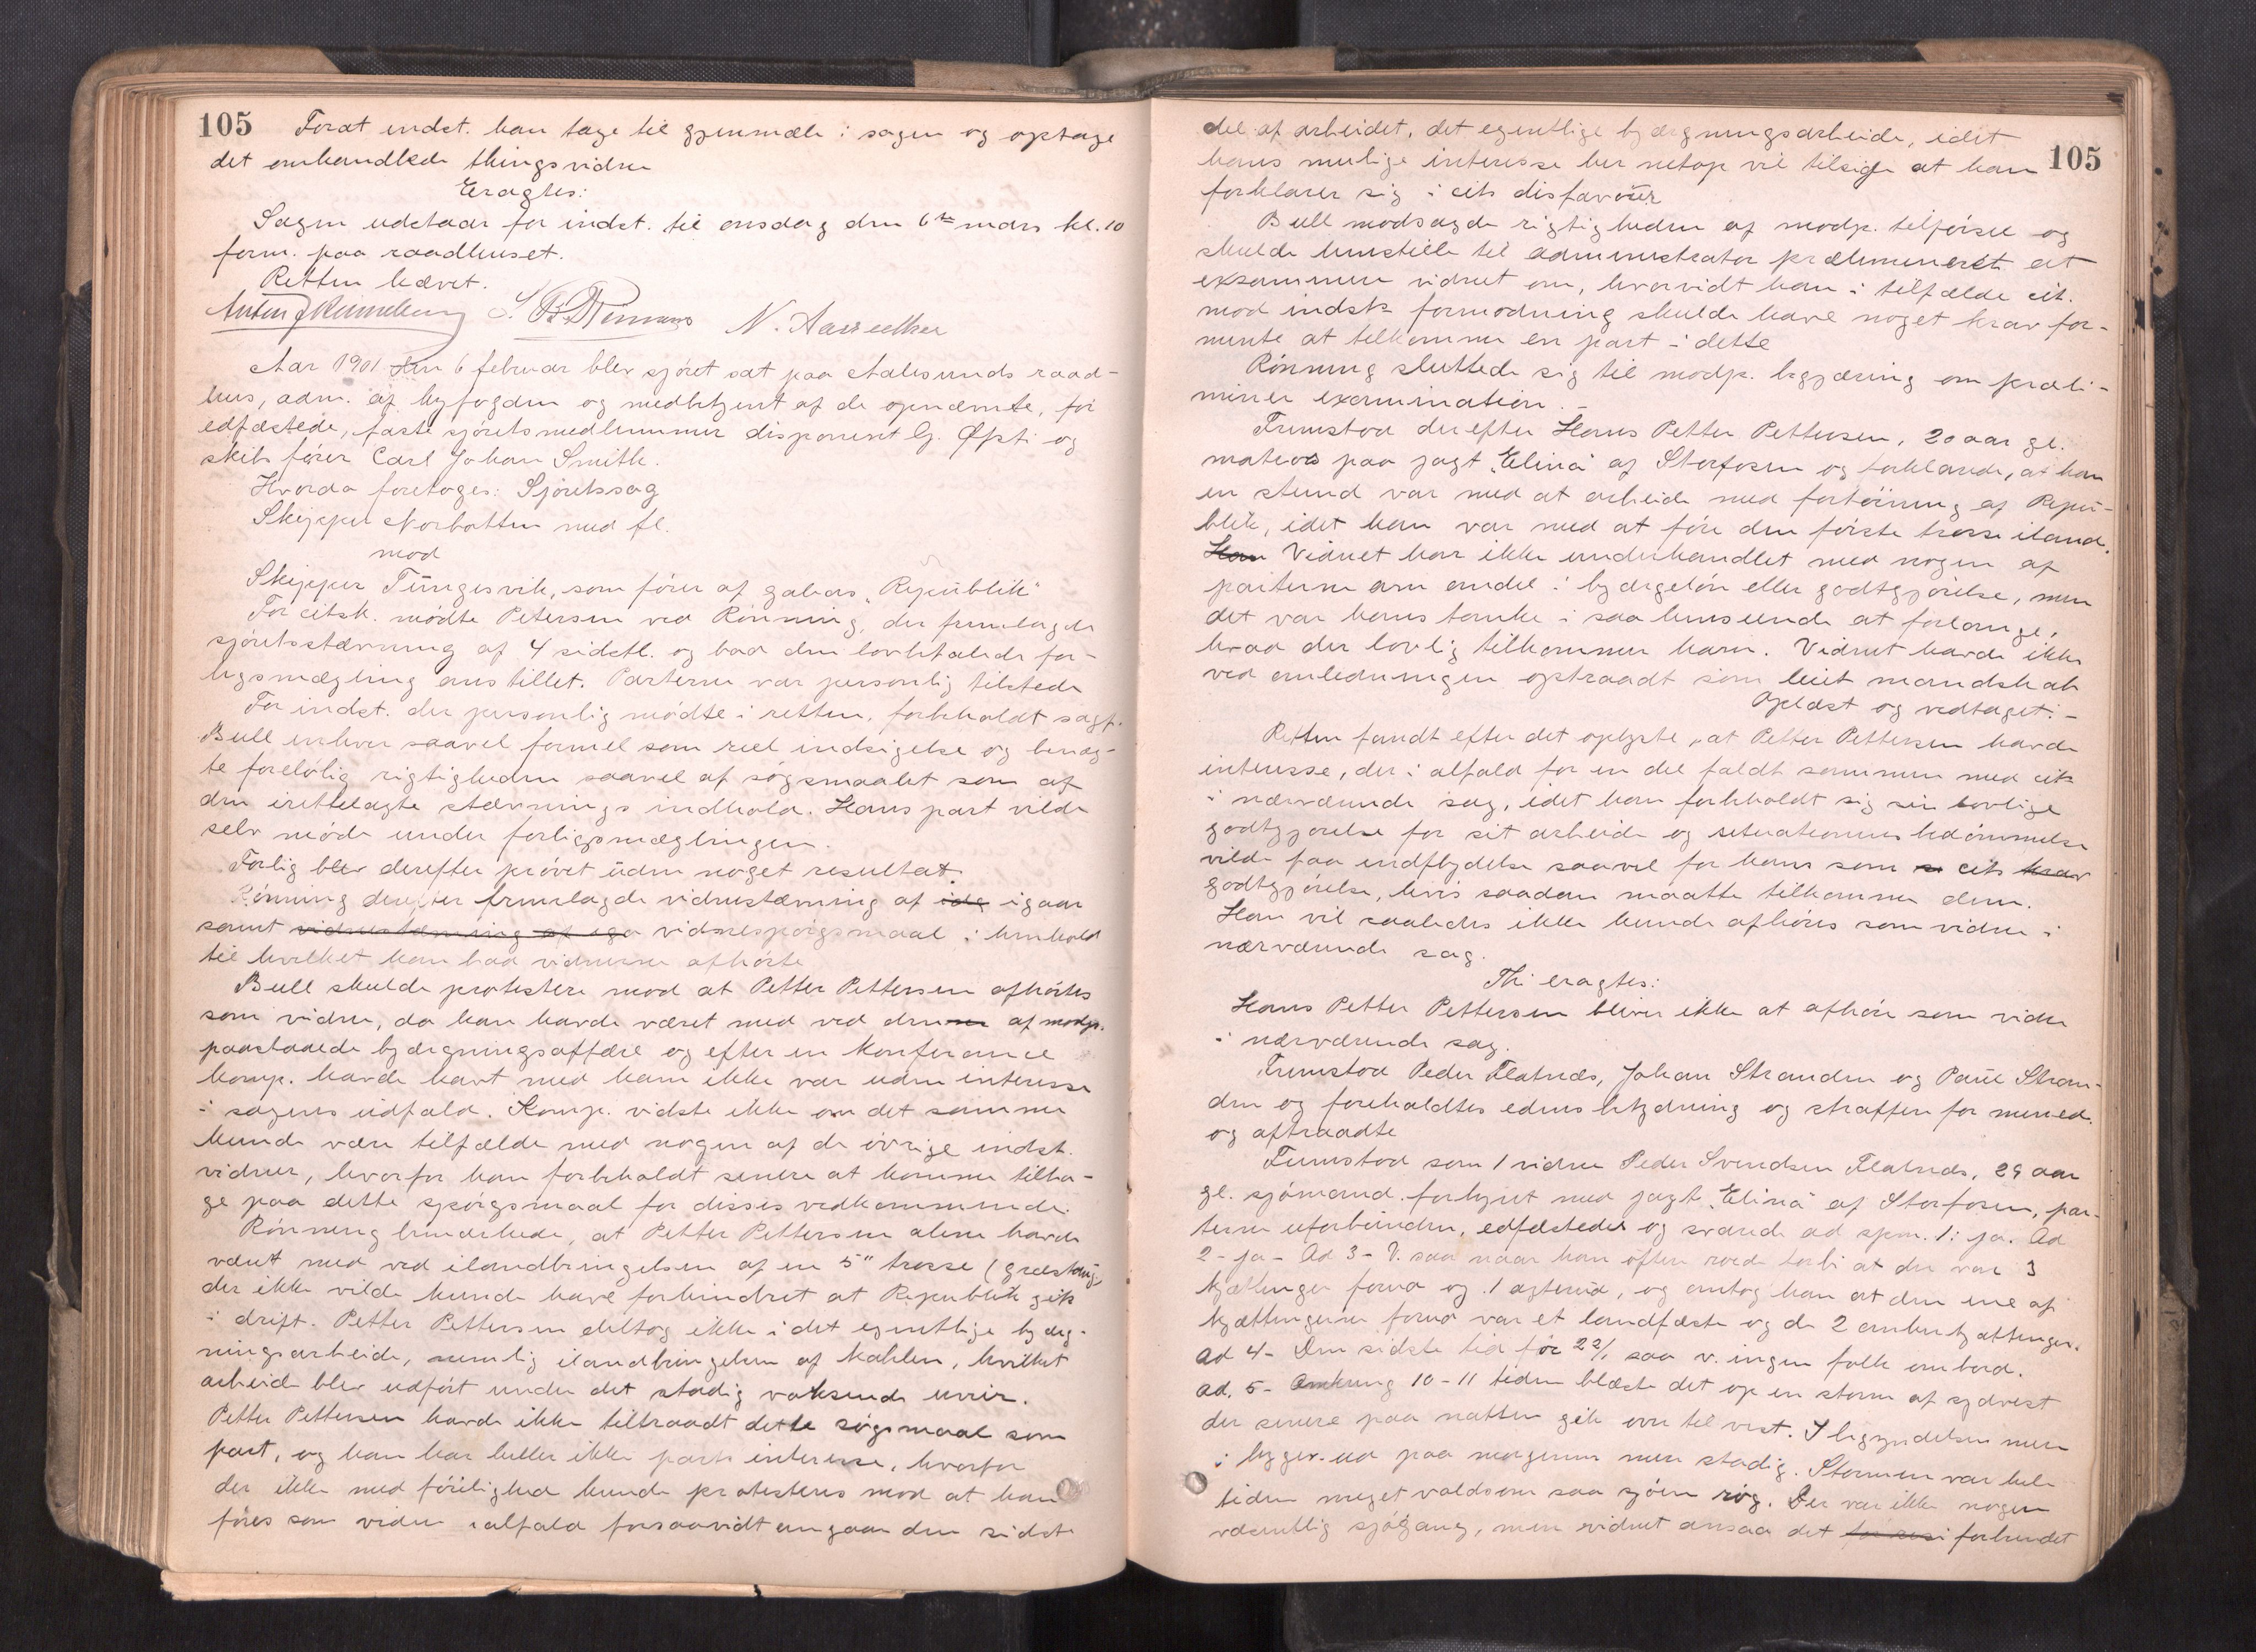 105 Forat indst. kan tage til gjenmæle i sagen og optage
det omhandlede thingsvidne
Eragtes:
Sagen udstaar for indst. til onsdag den 6te mars kl. 10
form. paa raadhuset.
Retten hævet.
N. Aarsether
Aar 1901 den 6 februar blev sjøret sat paa Aalesunds raad-
hus, adm. af byfogden og medbetjent af de opnævnte, før
edfæstede, faste sjøretsmedlemmer disponent G. Øfsti og
skibsfører Carl Johan Smith.
Hvorda foretoges: Sjøretssag
Skipper Norbotten med fl.
mod
Skipper Tungesvik, som fører af galeas „Republik“
For citsk. mødte Petersen ved Rønning, der fremlagde
sjøretsstævning af 4 sidstl. og bad den lovbefalede for-
ligsmægling anstillet. Parterne var personlig tilstede
For indst. der personlig mødte i retten, forbeholdt sagf.
Bull enhver saavel formel som reel indsigelse og benæg-
te foreløbig rigtigheden saavel af søgsmaalet som af
den irettelagte stævnings indhold. Hans part vilde
selv møde under forligsmæglingen.
Forlig blev derefter prøvet uden noget resultat.
Rønning derefter fremlagde vidnestævning af idag igaar
samt vidnestævning af iga vidnespørgsmaal i henhold
til hvilket han bad vidnerne afhørte
Bull skulde protestere mod at Petter Pettersen afhørtes
som vidne, da han havde været med ved denne af modp.
paastaaede bjærgningsaffære og efter en konferance
komp. havde havt med ham ikke var uden interesse
i sagens udfald. Komp. vidste ikke om det samme
kunde være tilfælde med nogen af de øvrige indst.
vidner, hvorfor han forbeholdt senere at komme tilba-
ge paa dette spørgsmaal for disses vedkommende.
Rønning bemærkede, at Petter Pettersen alene havde
været med ved ilandbringelsen af en 5" trosse (græstaug)
der ikke vilde kunde have forhindret at Republik gik
i drift. Petter Pettersen deltog ikke i det egentlige bjærg-
ningsarbeide, nemlig ilandbringelsen af kablen, hvilket
arbeide blev udført under det stadig voksende uveir.
Petter Pettersen havde ikke tiltraadt dette søgsmaal som
part, og han har heller ikke parts interesse, hvorfor
der ikke med føielighed kunde protesteres mod at han
føres som vidne ialfald forsaavidt angaar den sidste
105
del af arbeidet, det egentlige bjærgningsarbeide, idet
hans mulige interesse her netop vil tilsige at han
forklarer sig i cits disfavour
Bull modsagde rigtigheden af modp. tilførsel og
skulde henstille til administrator præliminært at
eksaminere vidnet om, hvorvidt han i tilfælde cit.
mod indsts formodning skulde have noget krav for-
mente at tilkomme en part i dette
Rønning sluttede sig til modp. begjæring om præli-
minær examination. -
Fremstod derefter Hans Petter Pettersen, 20 aar gl.
matros paa jagt „Elina“ af Storfosen og forklarede, at han
en stund var med at arbeide med fortøining af Repu-
blik, idet han var med at føre den første trosse iland.
Han Vidnet har ikke underhandlet med nogen af
parterne om andel i bjærgeløn eller godtgjørelse, men
det var hans tanke i saa henseende at forlange,
hvad der lovlig tilkommer ham. Vidnet havde ikke
ved anledningen optraadt som leiet mandskab
Oplæst og vedtaget: -
Retten fandt efter det oplyste, at Petter Pettersen havde
interesse, der i alfald for en del faldt sammen med cits
i nærværende sag, idet han forbeholdt sig sin lovlige
godtgjørelse for sit arbeide og situationens bedømmelse
vilde faa indflydelse saavel for hans som si cits krav
godtgjørelse, hvis saadan maatte tilkomme dem.
Han vil saaledes ikke kunde afhøres som vidne i
nærværende sag.
Thi eragtes:
Hans Petter Pettersen bliver ikke at afhøre som vidne
i nærværende sag.
Fremstod Peder Flatnæs, Johan Stranden og Paul Stran-
den og foreholdtes edens betydning og straffen for mened.
og aftraadte
Fremstod som 1 vidne Peder Svendsen Flatnæs, 29 aar
gl. sjømand forhyret med jagt „Elina“ af Storfosen, par-
terne uforbunden, edfæstedes og svarede ad spm. 1: ja. Ad
2 - ja - Ad 3 - V. saa naar han ofte roede forbi at der var 3
kjættinger forud og 1 agterud, og antog han at den ene af
kjættingerne forud var et landfæste og de 2 ankerkjættinger.
Ad 4 - Den sidste tid før 22/1 saa v. ingen folk ombord.
Ad. 5 - Omkring 10-11 tiden blæste det op en storm af sydvest
der senere paa natten gik over til vest. I begyndelsen mere
i bygger. ud paa morgenen mere stadig. Stormen var hele
tiden meget voldsom saa sjøen røg. Der var ikke nogen
væsentlig sjøgang, men vidnet ansaa det forbundet